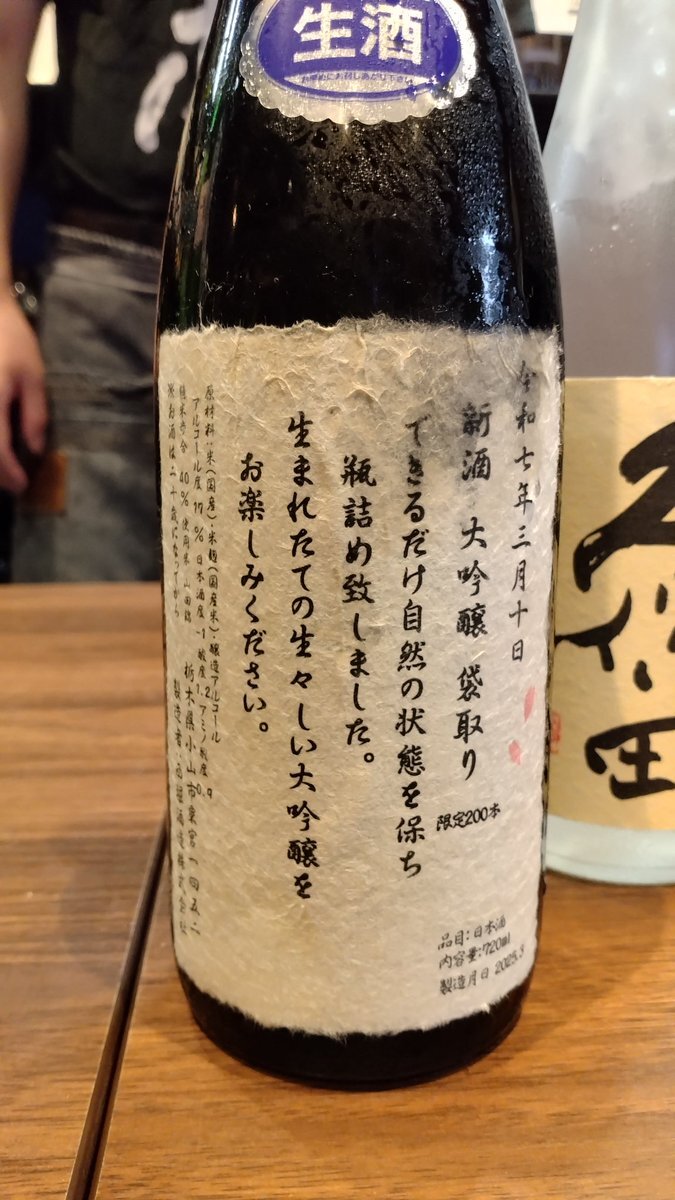 生酒
お早めにお召しあがり下さい
令和七年三月十日
新酒 大吟醸 袋取り
限定200本
できるだけ自然の状態を保ち
瓶詰め致しました。
生まれたての生々しい大吟醸を
お楽しみください。
原材料:米(国産)・米麹(国産米)・醸造アルコール
アルコール度 17% 日本酒度 -1 酸度 1.2 アミノ酸度 0.9
精米歩合 40% 使用米 山田錦
栃木県小山市東宮一四五二
※お酒は二十歳になってから
製造者:西堀酒造株式会社
品目:日本酒
内容量:720ml
製造月日 2025.3
田